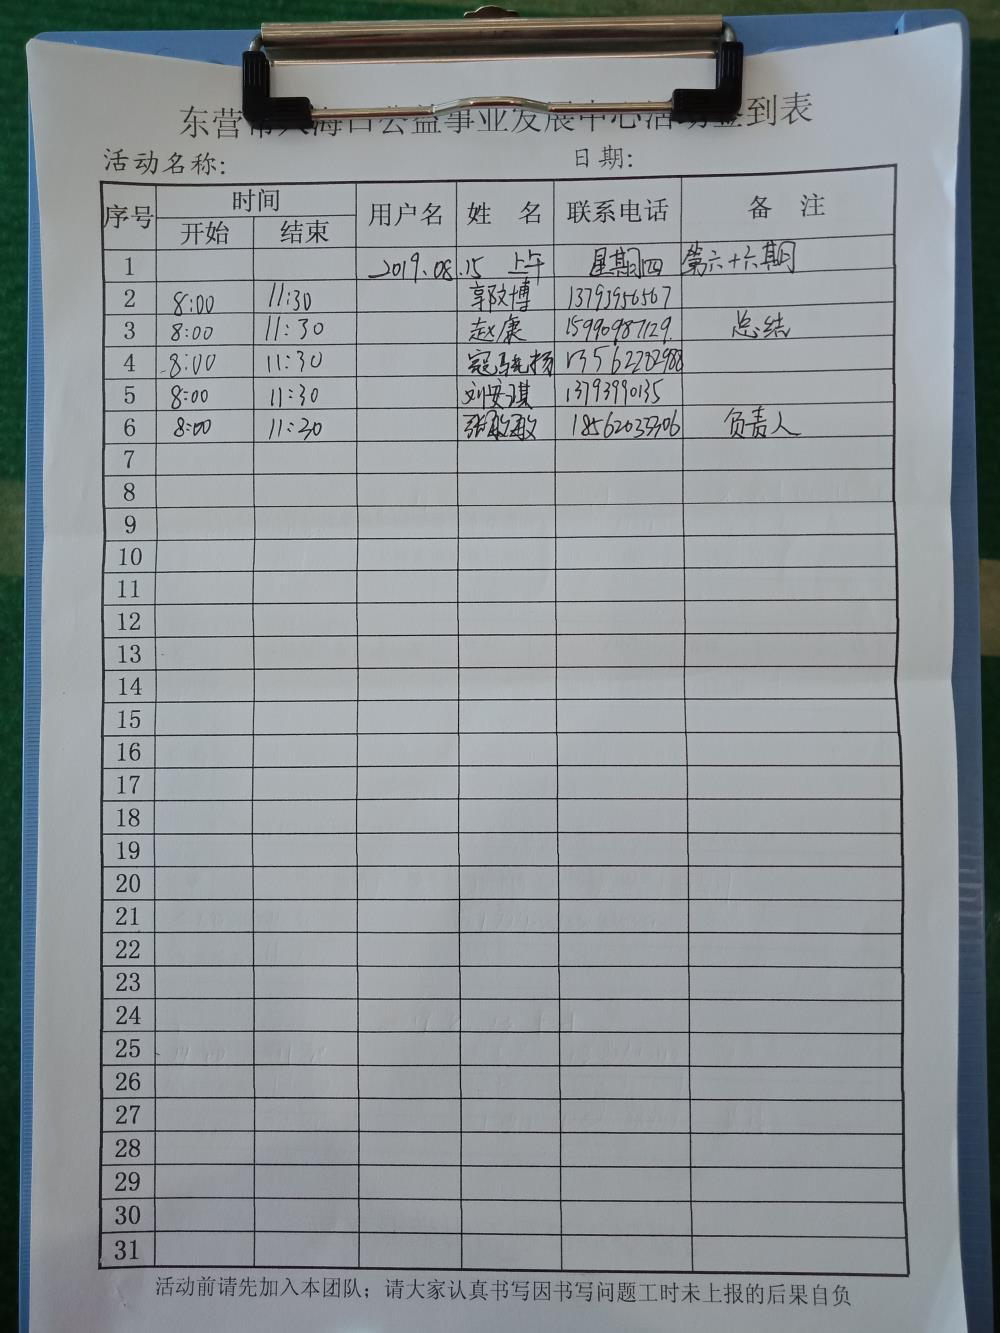 东营市大海口公益事业发展中心活动签到表
活动名称: 日期:
序号 时间 用户名 姓 名 联系电话 备 注
开始 结束
1 2019.08.15 上午 星期四 第六十六期
2 8:00 11:30 郭文博 13793956567
3 8:00 11:30 赵康 15990987129 总结
4 8:00 11:30 寇骁扬 13562202988
5 8:00 11:30 刘安谋 13793990135
6 8:00 11:30 张敏敏 18562033306 负责人
7
8
9
10
11
12
13
14
15
16
17
18
19
20
21
22
23
24
25
26
27
28
29
30
31
活动前请先加入本团队；请大家认真书写因书写问题工时未上报的后果自负